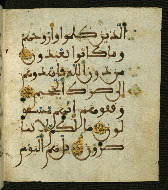 الذين ظلموا وازوجهم
وما كانوا يعبدون
من دون الله فاهدوهم
الى صرط الجحيم
وقفوهم انهم مسئو
لون ما لكم لا تنا
صرون بل هم اليوم